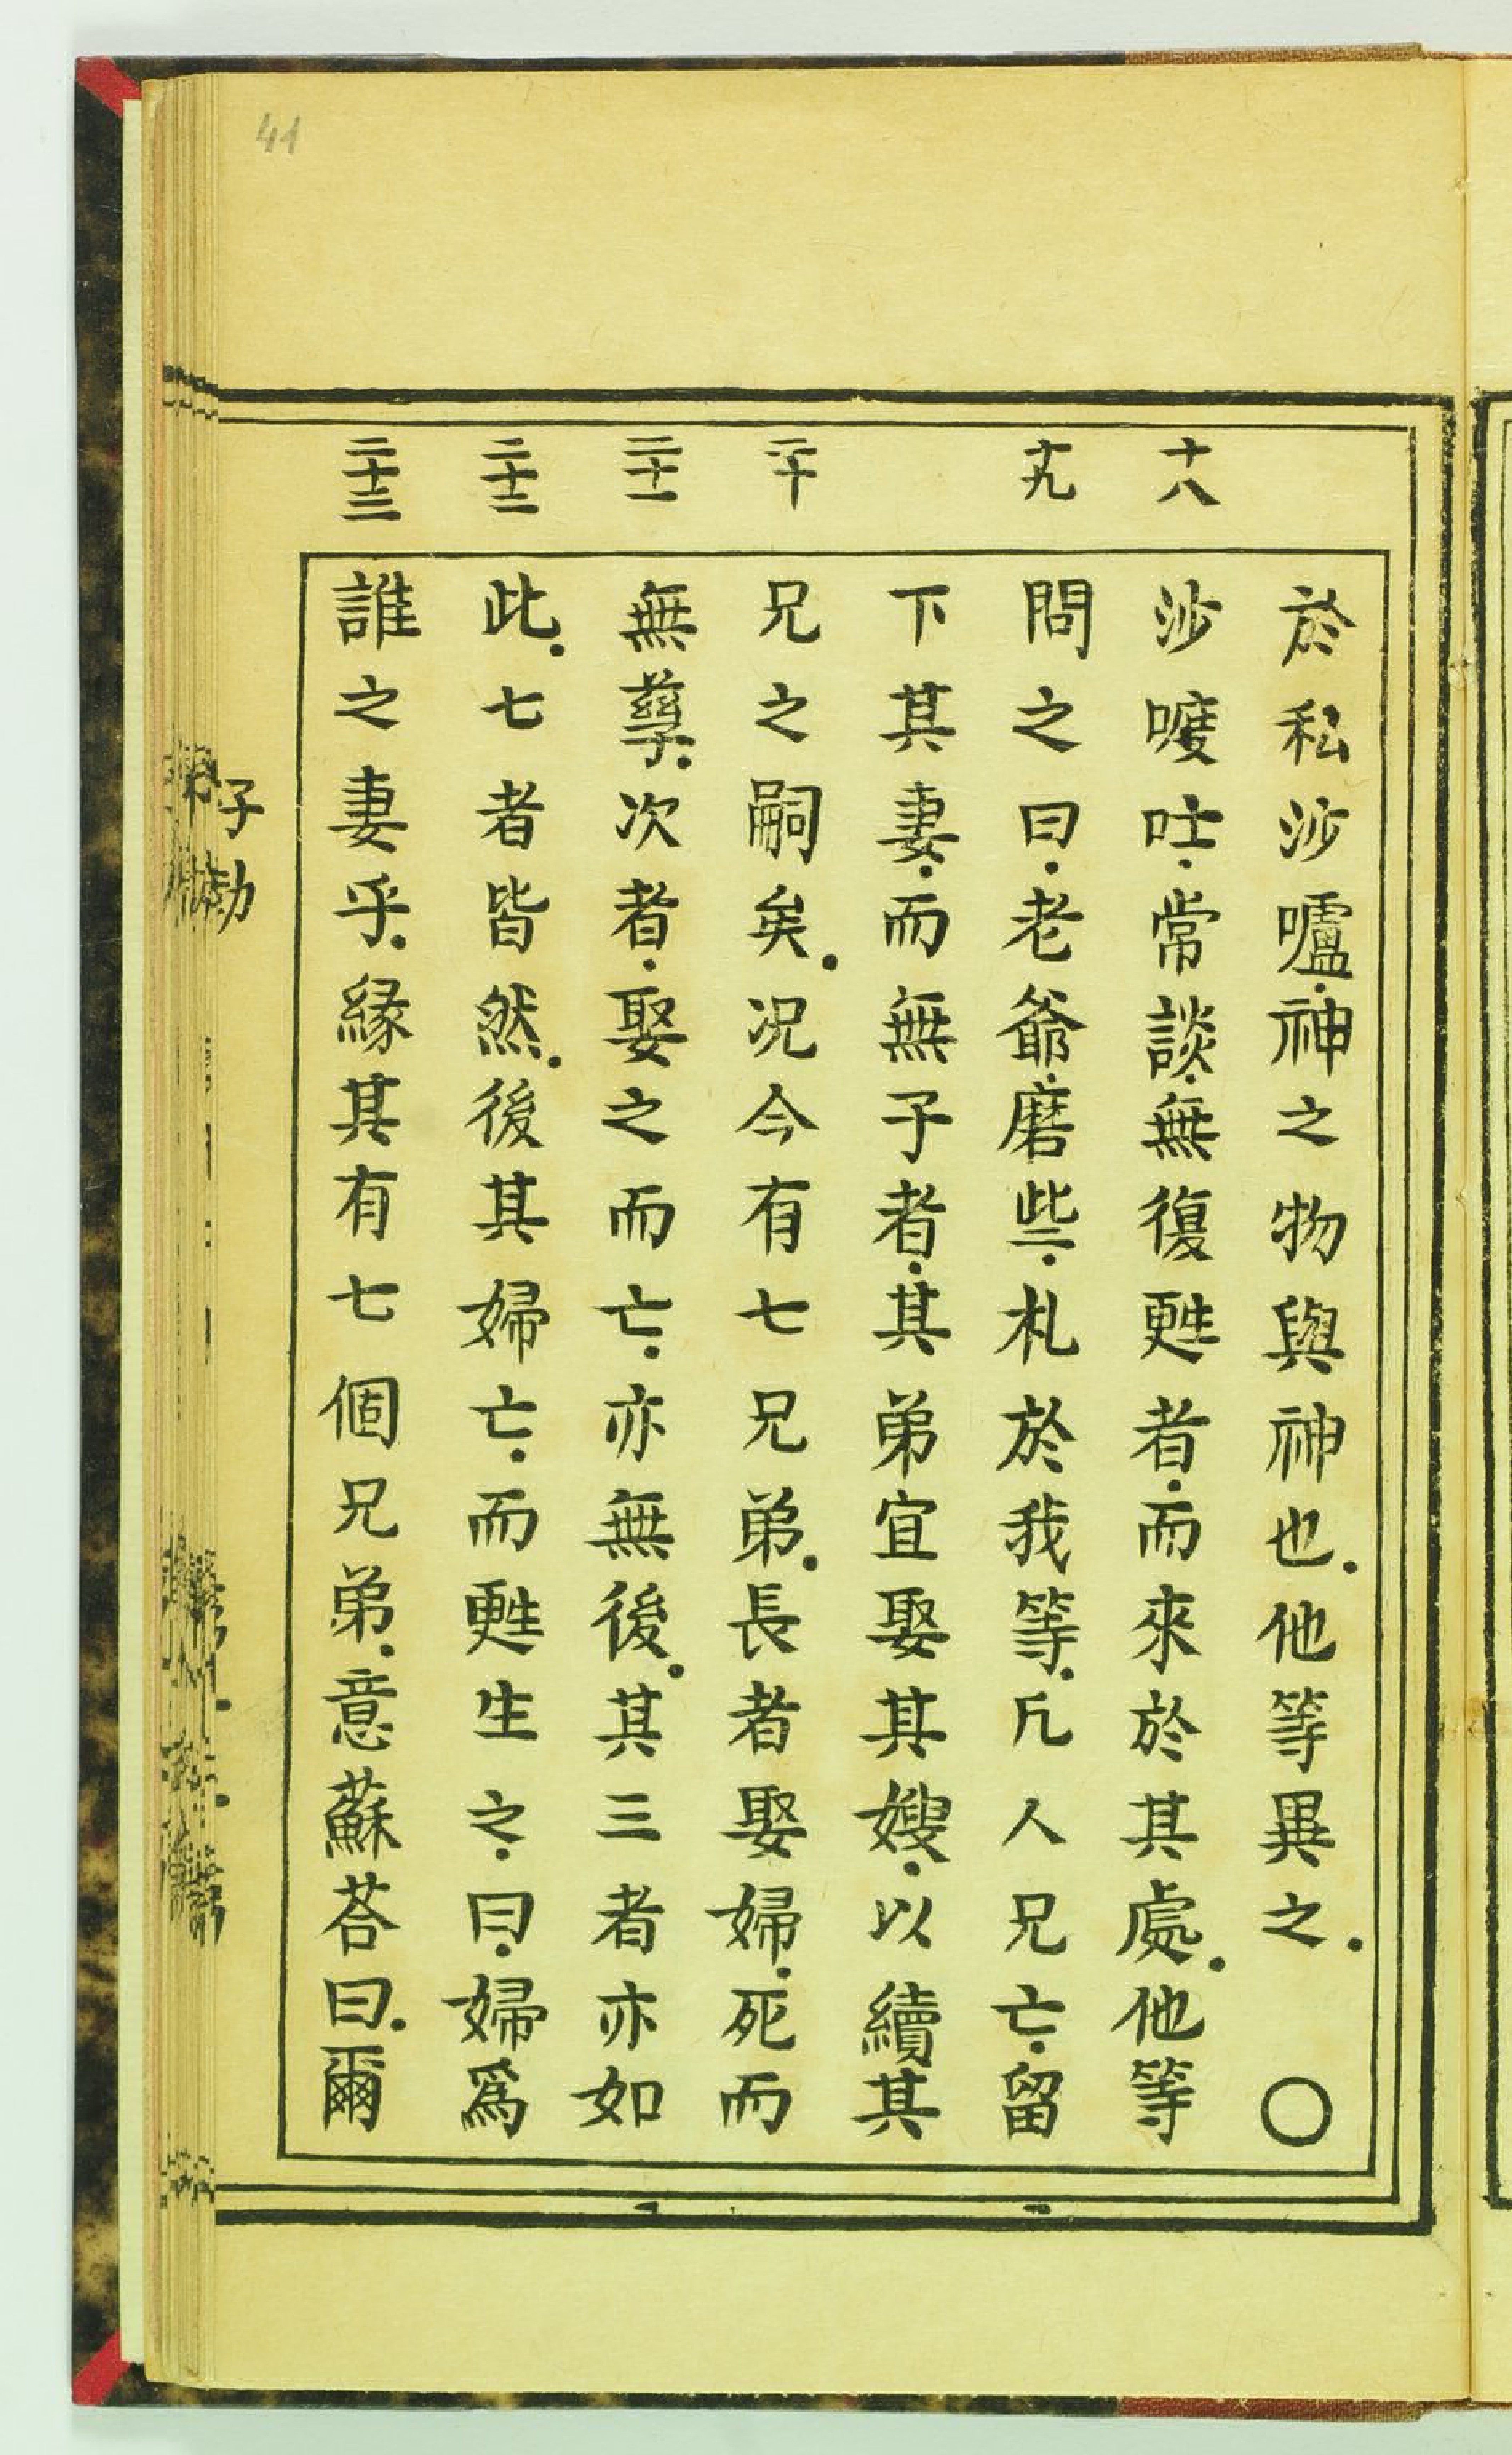 41
於私沙嚧.神之物與神也.他等異之.○
十八
沙嘜吐.常談.無復甦者.而來於其處.他等
十九
問之曰.老爺.磨些.札於我等.凡人兄亡.留
下其妻.而無子者.其弟宜娶其嫂.以續其
二十
兄之嗣矣.况今有七兄弟.長者娶婦.死而
二十一
無孽.次者.娶之而亡.亦無後.其三者亦如
二十二
此.七者皆然.後其婦亡.而甦生之.曰.婦爲
二十三
誰之妻乎.緣其有七個兄弟.意蘇荅曰.爾